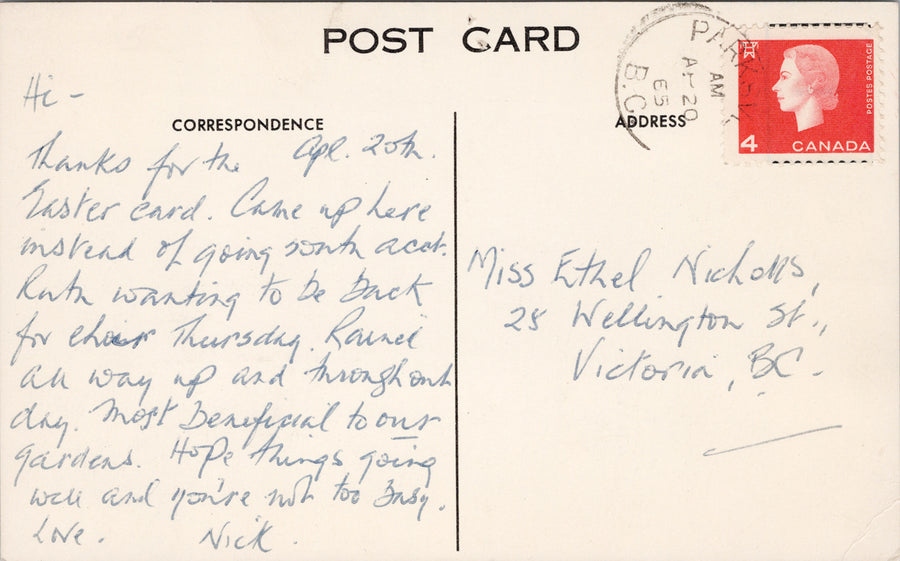 POST CARD
PARKSV
AM
AP 20
65
B.C.
POSTES POSTAGE
4 CANADA
Hi -
CORRESPONDENCE
ADDRESS
Apl. 20th.
Thanks for the
Easter card. Came up here
instead of going south acct.
Ruth wanting to be back
for choir Thursday. Rained
all way up and throughout
day. Most beneficial to our
gardens. Hope things going
well and you're not too busy.
Love. Nick.
Miss Ethel Nicholls,
25 Wellington St.,
Victoria, BC.